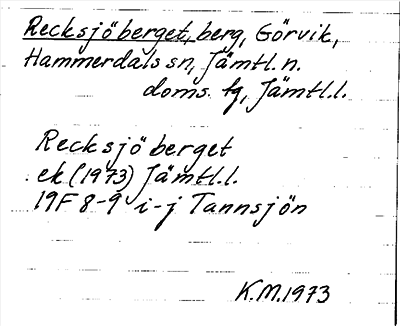 Recksjöberget, berg, Görvik,
Hammerdals sn, Jämtl. n.
doms. tg, Jämtl.l.
Recksjöberget
ek (1973) Jämtl.l.
19F 8-9 i-j Tannsjön
K.M.1973